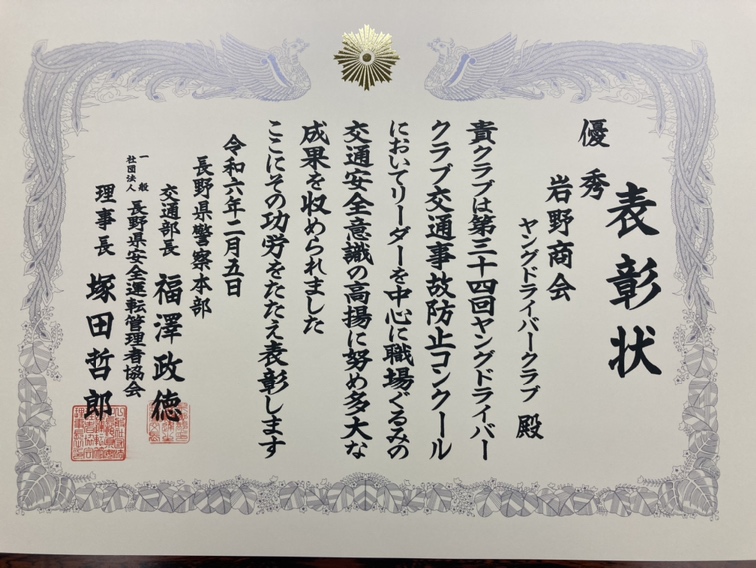 表彰状
優秀
岩野商会
ヤングドライバークラブ 殿
貴クラブは第三十四回ヤングドライバー
クラブ交通事故防止コンクール
においてリーダーを中心に職場ぐるみの
交通安全意識の高揚に努め多大な
成果を収められました
ここにその功労をたたえ表彰します
令和六年二月五日
長野県警察本部
交通部長 福澤政徳
一般社団法人 長野県安全運転管理者協会
理事長 塚田哲郎